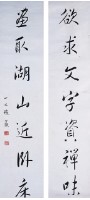 欲求文字資禪味
畫取湖山近臥床